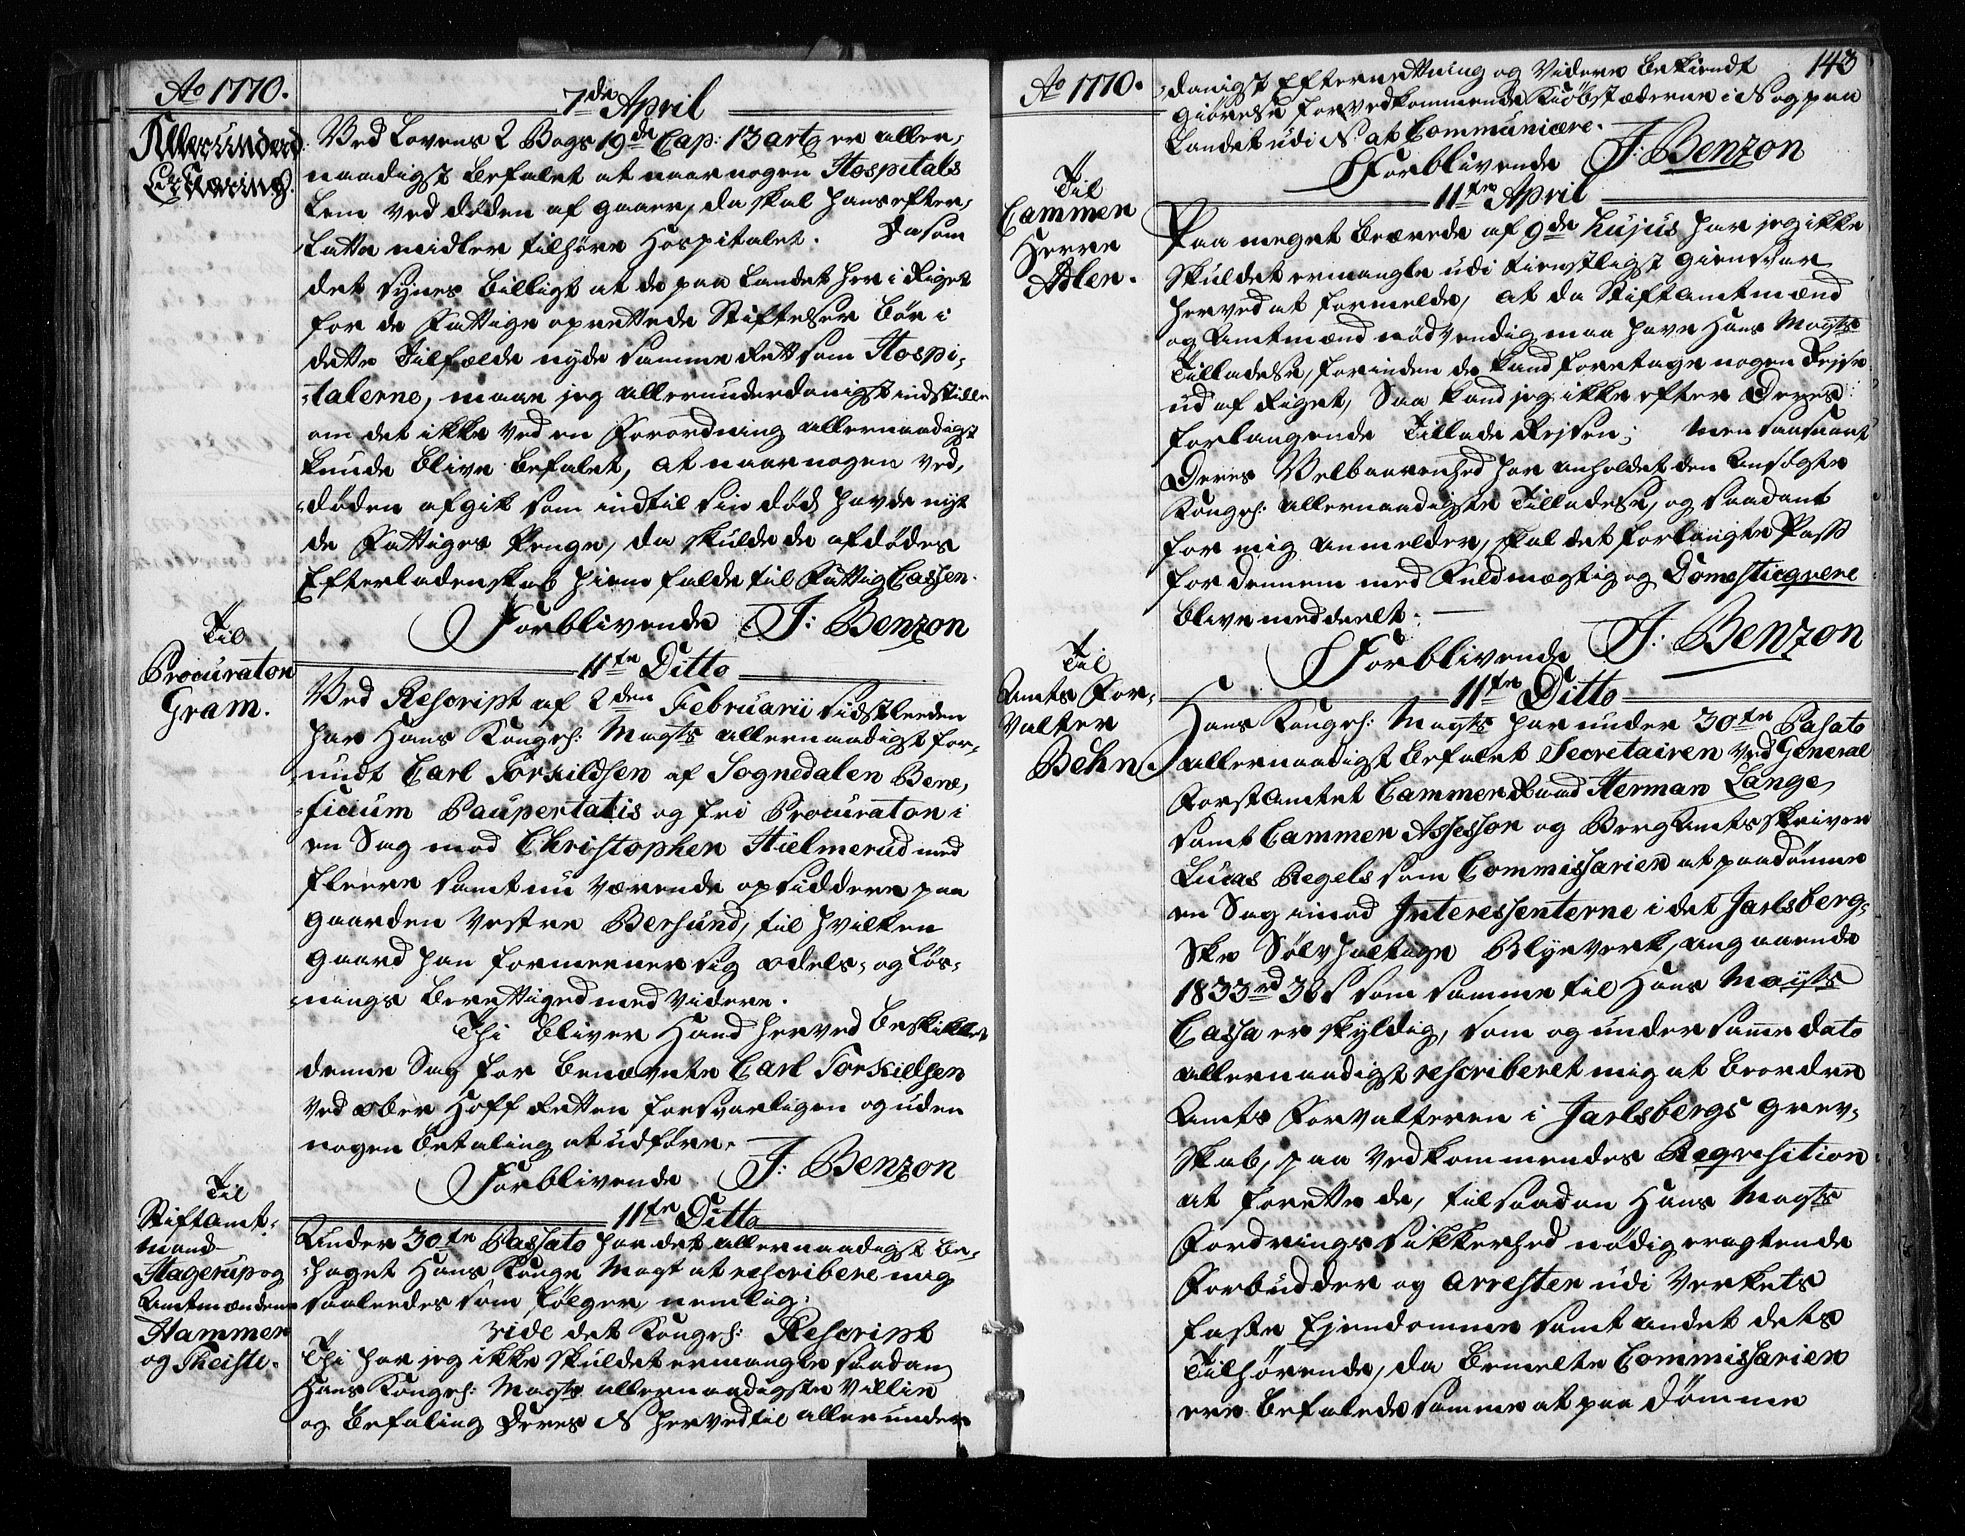 Ao 1770.
7de April
Allerunderd.
Erklæring.
Ved Lovens 2 Bogs 19de Cap: 13 art er aller-
naadigst befalet at naar nogen Hospitals
Lem ved døden af gaaer, da skal hans efter-
latte midler tilhøre Hospitalet. Da som
det synes billigt at de paa Landet her i Riget
for de Fattige oprettede Stiftelser bør i
dette Tilfælde nyde samme Rett som Hospi-
talerne, maae jeg allerunderdanigst indstille
om det ikke ved en Forordning allernaadigst
kunde blive befalet, at naar nogen ved
døden afgik som indtil sin død havde nyt
de Fattiges Penge, da skulde de afdødes
Efterladenskab hiem falde til Fattig Cassen.
Forblivende J: Benzon
Til
Procurator
Gram.
11te Ditto
Ved Rescript af 2den Februarii sidstleeden
har Hans Kongel: Mayts allernaadigst for-
undt Carl Torkildsen af Sognedalen Bene-
ficium Paupertatis og fri Procurator i
en Sag mod Christopher Hielmerud med
fleere samt nu værende opsiddere paa
gaarden Vestre Bersund, til hvilken
gaard han formeener sig odels- og Løs-
nings berettiged med videre.
Thi bliver Hand herved beskikket
denne Sag for benævnte Carl Torkildsen
ved ober Hoff Retten forsvarligen og uden
nogen betaling at udføre.
Forblivende J: Benzon
Til
Stiftamt-
mand
Hagerup og
Amtmændene
Hammer
og Theiste.
11te Ditto
Under 30te Passato har det allernaadigst be-
haget Hans Konge Mayt at rescribere mig
saaleedes som følger, nemlig:
vide det Kongel: Rescript
Thi har jeg ikke skuldet ermangle saadan
Hans Kongel: Mayts allernaadigste Villie
og befaling Deres N herved til allerunder
Ao 1770.
143
danigst Efterrettning og videre bekiendt
giørelse for vedkommende Kiøbstæderne i N og paa
Landet udi N. at Communicere.
Forblivende J: Benzon
Til
Cammer
Herre
Adler.
11te April
Paa meget beærede af 9de hujus har jeg ikke
skuldet ermangle udi tienstligst giensvar
herved at formelde, at da Stiftamtmænd
og Amtmænd nødvendig maa have Hans Mayts
Tilladelse, forinden de kand foretage nogen Rejse
ud af Riget, Saa kand jeg ikke efter Deres
forlangende Tillade Rejsen; Men saasnart
Deres Velbaarenhed har anholdet den ansøgte
Kongel: allernaadigste Tilladelse, og saadant
for mig anmelder, skal det forlangte Pass
for dennem med Fuldmægtig og Domestiqvere
blive meddeelt.
Forblivende J: Benzon
Til
Amts For-
valter
Behn.
11te Ditto
Hans Kongel: Mayts har under 30te Pasato
allernaadigst befalet Secretairen ved General
Forst Amtet Cammer Raad Herman Lange,
samt Cammer Assessor og Berg Amts skriver
Lucas Regels som Commissarier at paadømme
en Sag imod Interessenterne i det Jarlsberg-
ske Sølvholtige Blyeverk, angaaende
1833 rd 38 s som samme til Hans Mayts
Cassa er skyldig, som og under samme dato
allernaadigst rescriberet mig at beordre
Amts Forvalteren i Jarlsbergs Grev-
skab, paa vedkommendes Reqvisition
at forette de, til saadan Hans Mayts
Fordrings sikkerhed nødig eragtende
Forbudder og Arrester udi Verkets
faste Ejendomme samt andet dets
Tilhørende, da bemelte Commissarier
ere befalede samme at paa dømme